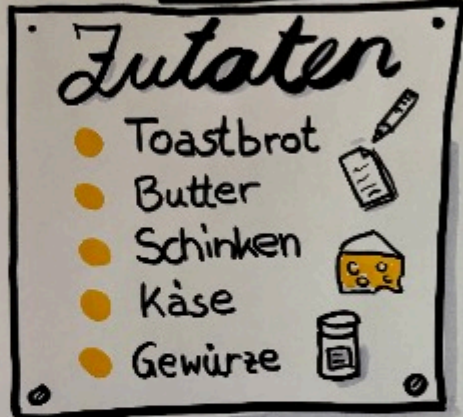 Zutaten
Toastbrot
Butter
Schinken
Käse
Gewürze